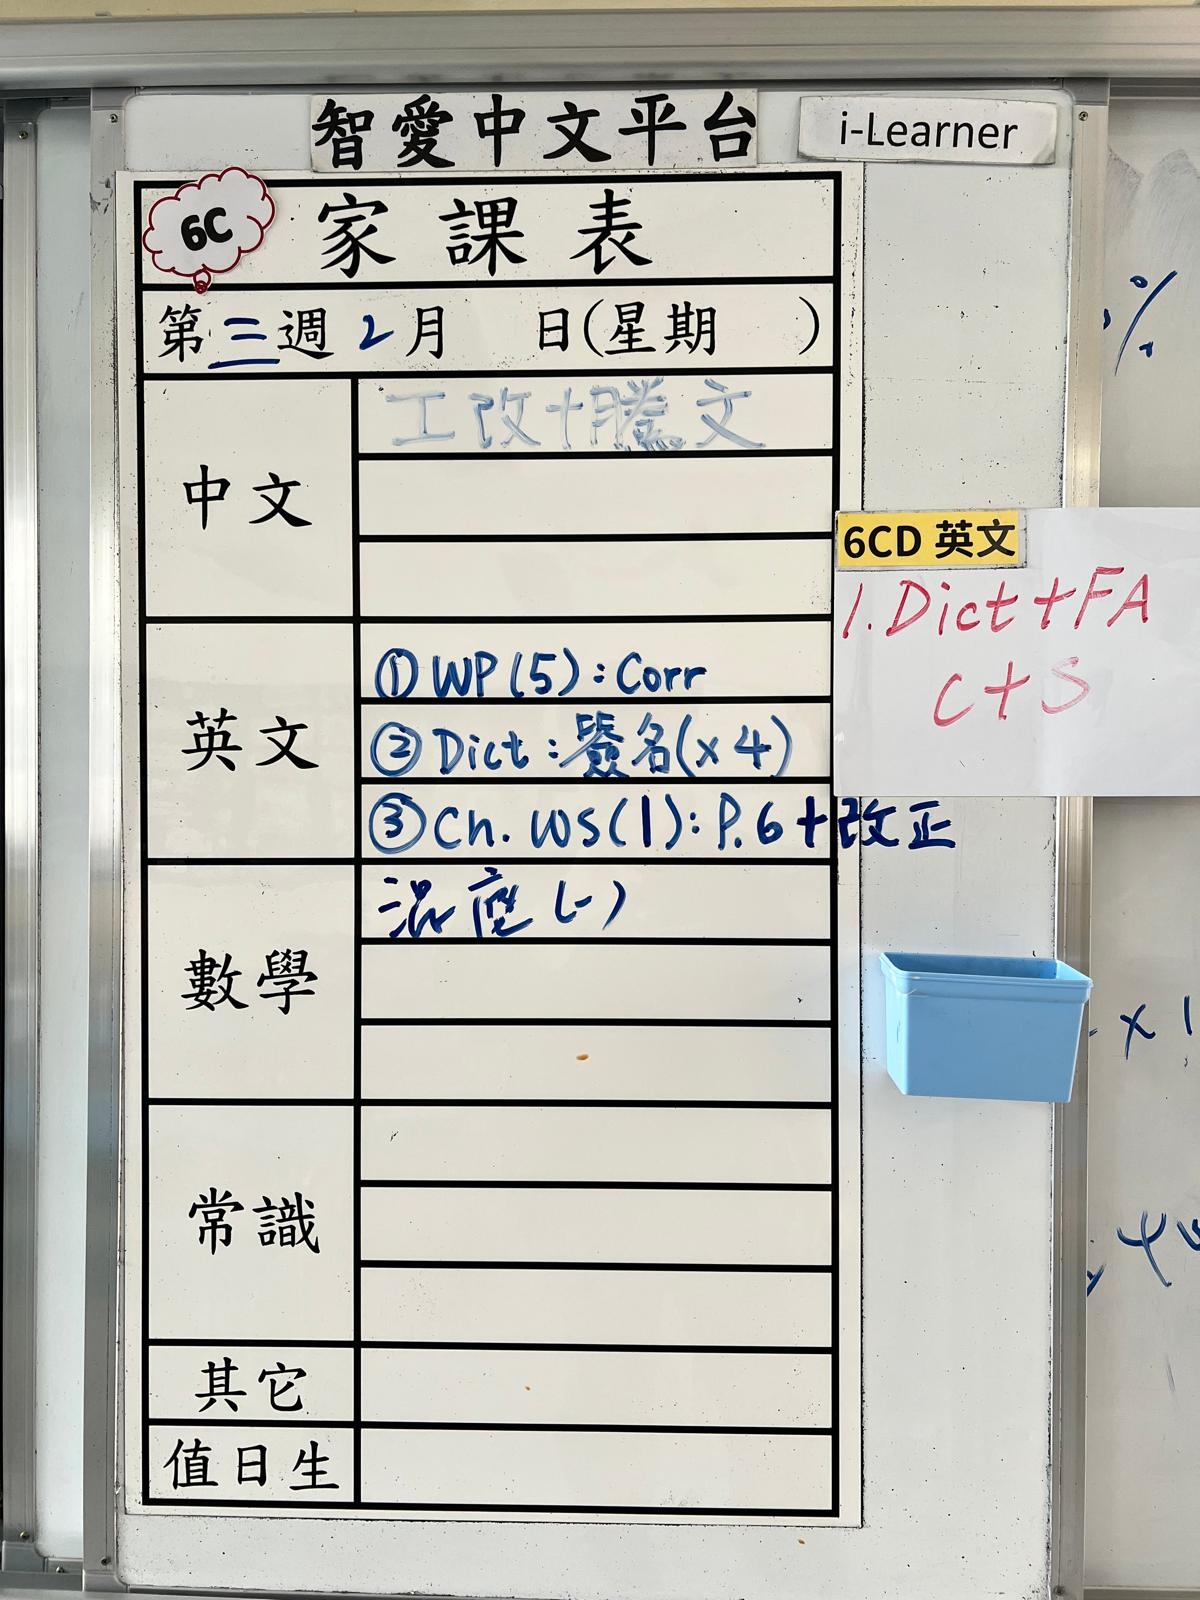 智愛中文平台
i-Learner
6C
家課表
第三週 2月 日(星期 )
中文
工改+謄文
英文
①WP(5):Corr
②Dict:簽名(x4)
③Ch. WS(1):P.6+改正
6CD 英文
1.Dict+FA
C+S
數學
混應(一)
常識
其它
值日生
%
x1